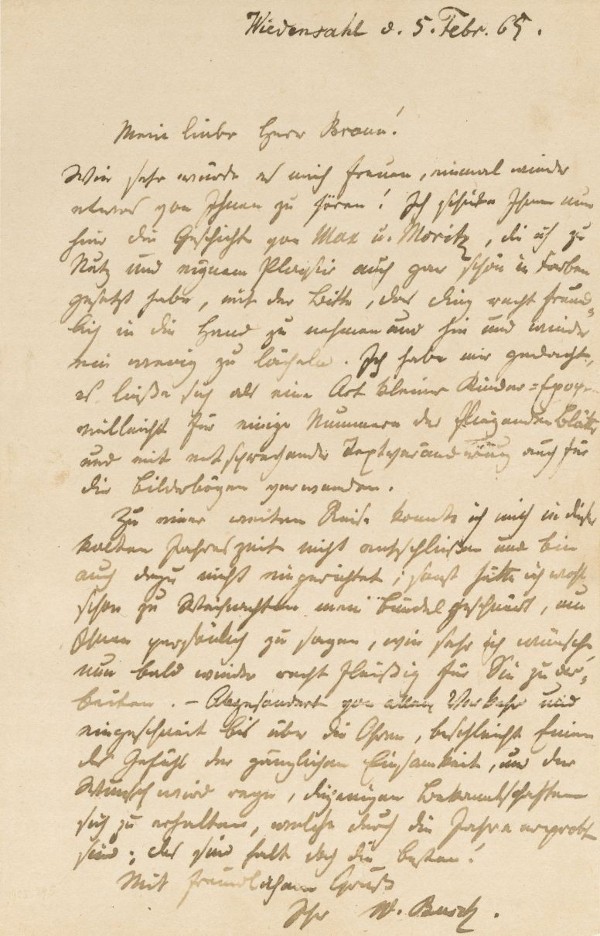 Wiedensahl d. 5. Febr. 65.
Mein lieber Herr Braun!
Wie sehr würde es mich freuen, einmal wieder
etwas von Ihnen zu hören! Ich schicke Ihnen nun
hier die Geschichte von Max u. Moritz, die ich zu
Nutz und eignem Plaisir auch gar schön in Farben
gesetzt habe, mit der Bitte, das Ding recht freund-
lich in die Hand zu nehmen und hin und wieder
ein wenig zu lächeln. Ich habe mir gedacht,
es ließe sich als eine Art kleiner Kinder-Epopoe
vielleicht für einige Nummern der fliegenden Blätter
und mit entsprechender Textveränderung auch für
die Bilderbögen verwenden.
Zu einer weiten Reise konnte ich mich in dieser
kalten Jahreszeit nicht entschließen und bin
auch dazu nicht eingerichtet; sonst hätte ich wohl
schon zu Weihnachten mein Bündel geschnürt, um
Ihnen persönlich zu sagen, wie sehr ich wünsche
nun bald wieder recht fleißig für Sie zu ar-
beiten. – Abgesondert von allem Verkehr und
eingeschneit bis über die Ohren, beschleicht Einen
das Gefühl der gänzlichen Einsamkeit, und der
Wunsch wird rege, diejenigen Bekanntschaften
sich zu erhalten, welche durch die Jahre erprobt
sind; das sind halt doch die besten!
Mit freundlichem Gruß
Ihr W. Busch.